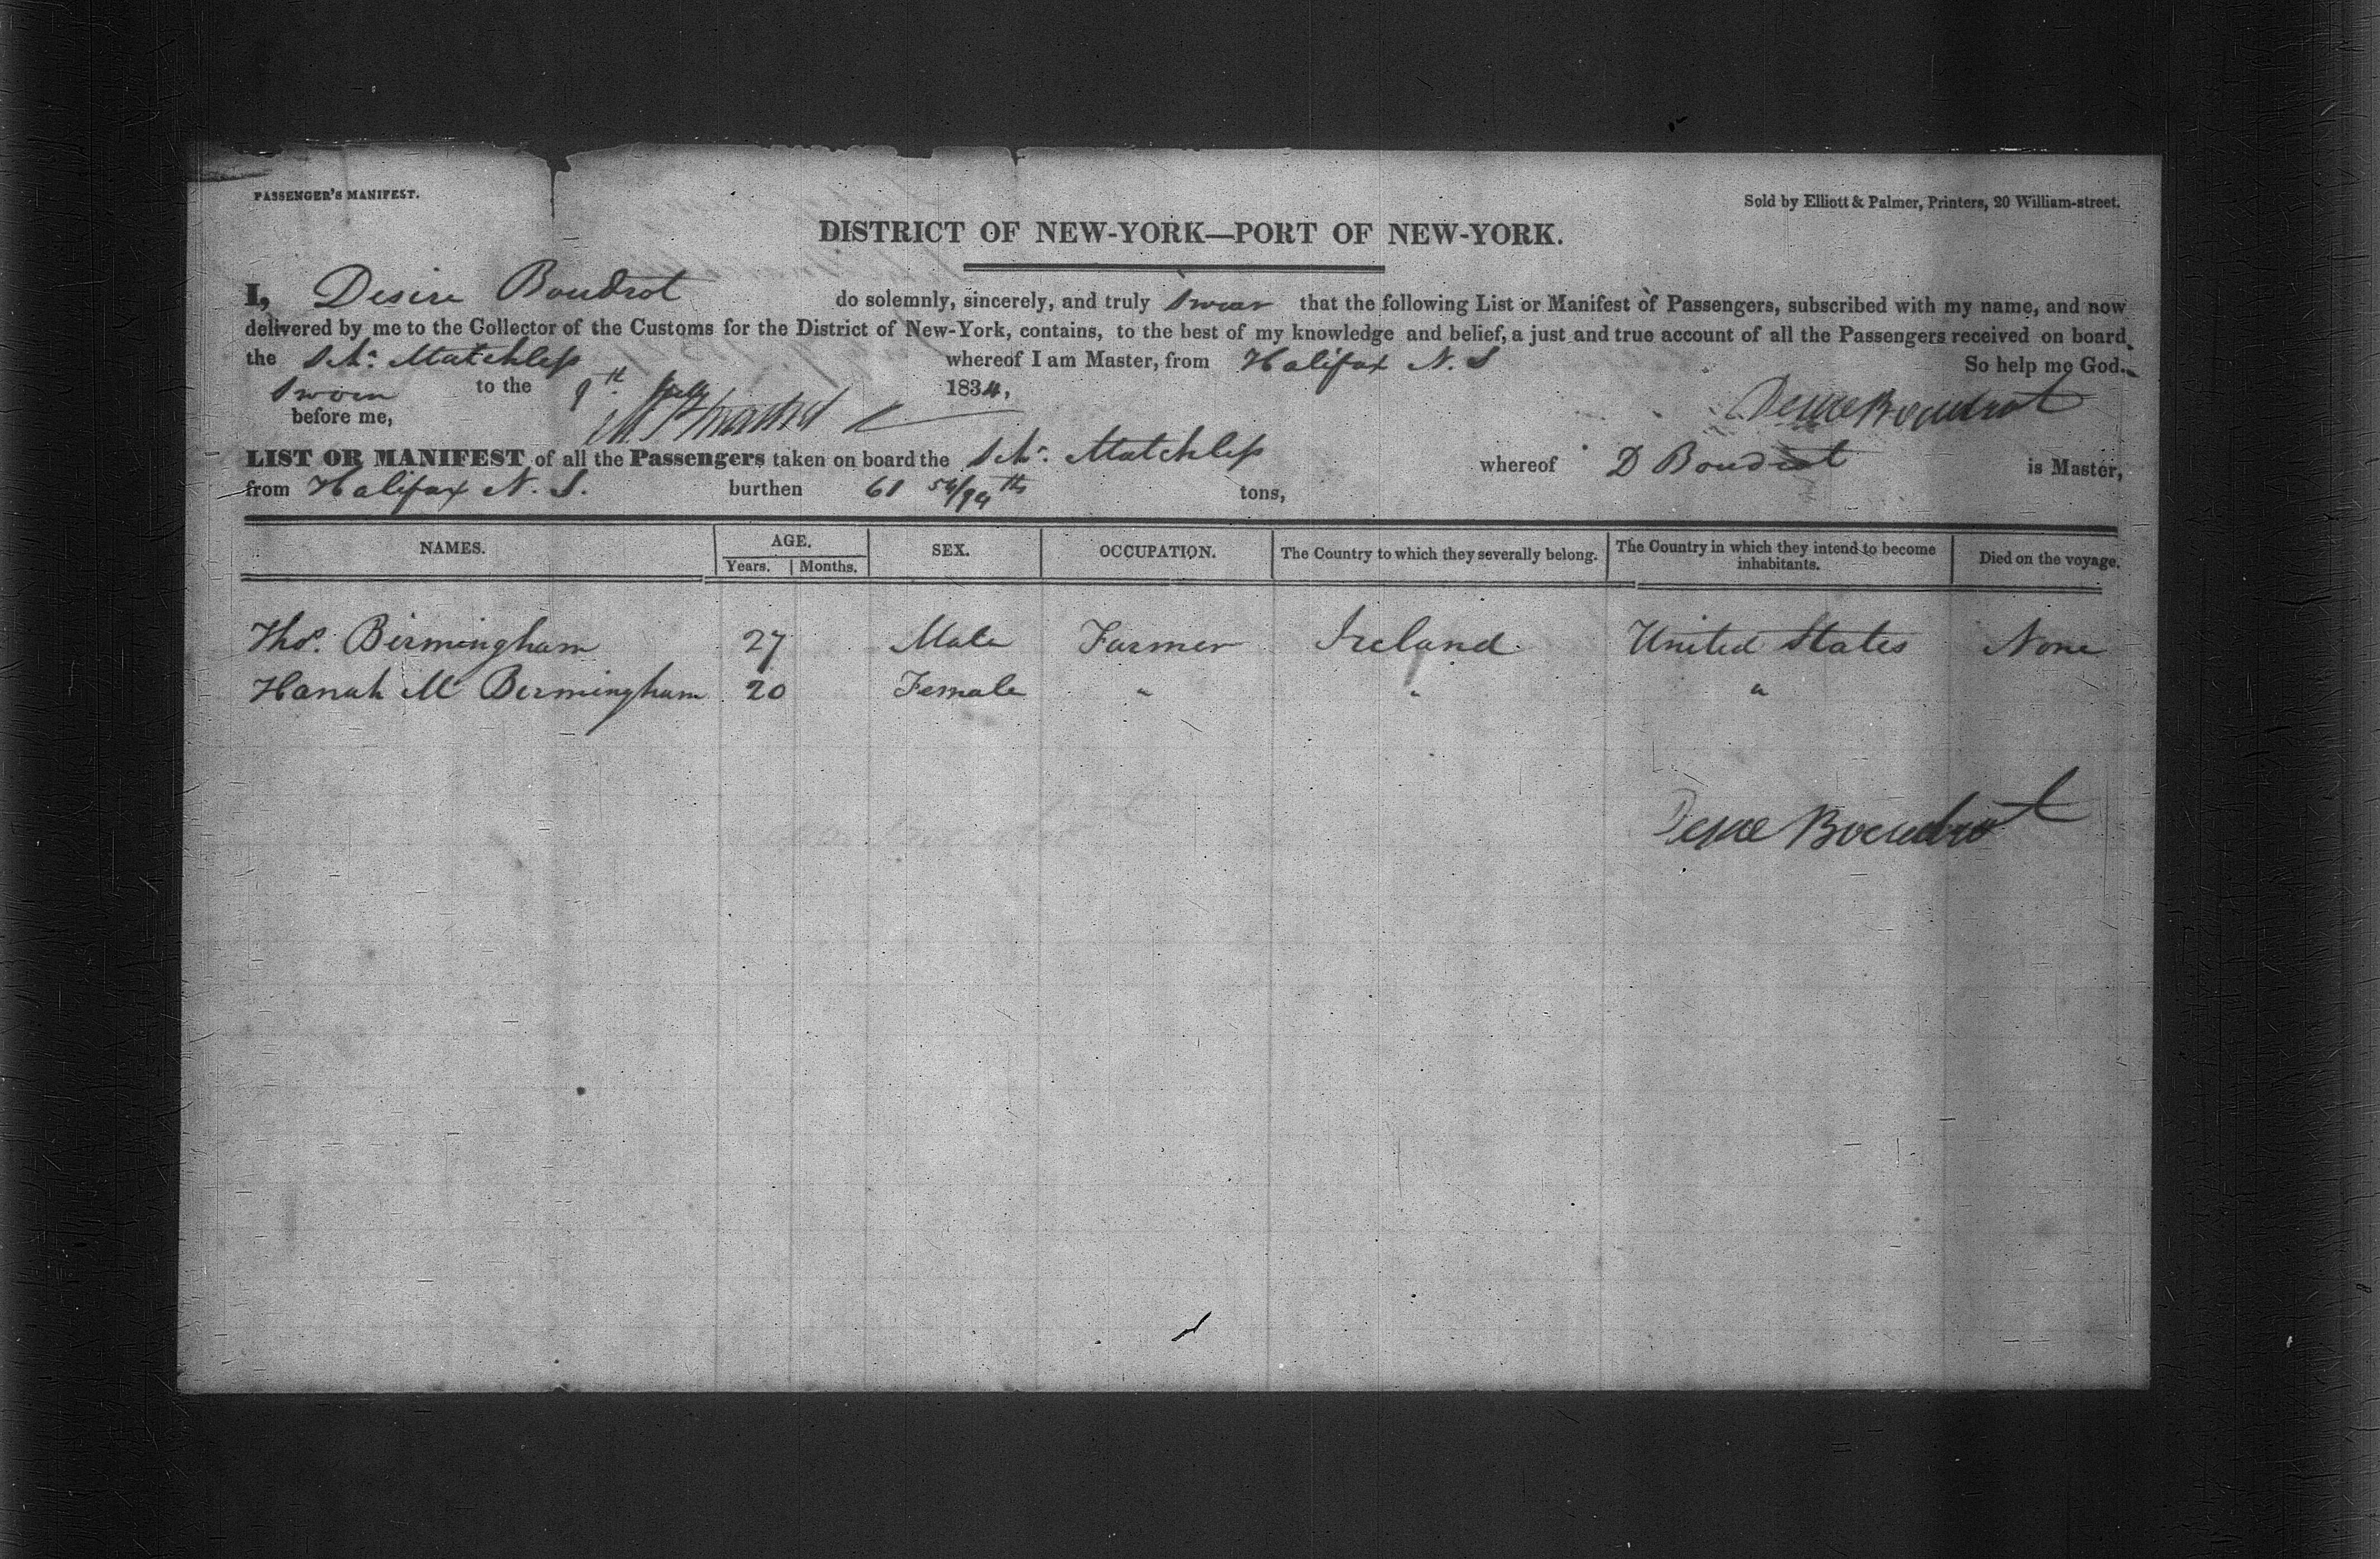 PASSENGER'S MANIFEST.
Sold by Elliott & Palmer, Printers, 20 William-street.
DISTRICT OF NEW-YORK—PORT OF NEW-YORK.
I, Desire Boudrot do solemnly, sincerely, and truly Swear that the following List or Manifest of Passengers, subscribed with my name, and now
delivered by me to the Collector of the Customs for the District of New-York, contains, to the best of my knowledge and belief, a just and true account of all the Passengers received on board
the Schr. Matchless whereof I am Master, from Halifax N. S So help me God.
Sworn to the 9th July 1834,
before me, Desire Boudrot
LIST OR MANIFEST of all the Passengers taken on board the Schr. Matchless whereof D Boudrot is Master,
from Halifax N. S. burthen 61 tons,
NAMES. AGE. SEX. OCCUPATION. The Country to which they severally belong. The Country in which they intend to become inhabitants. Died on the voyage.
Years. Months.
Thos. Birmingham 27 Male Farmer Ireland United States None
Hanah M Birmingham 20 Female " " "
Desire Boudrot